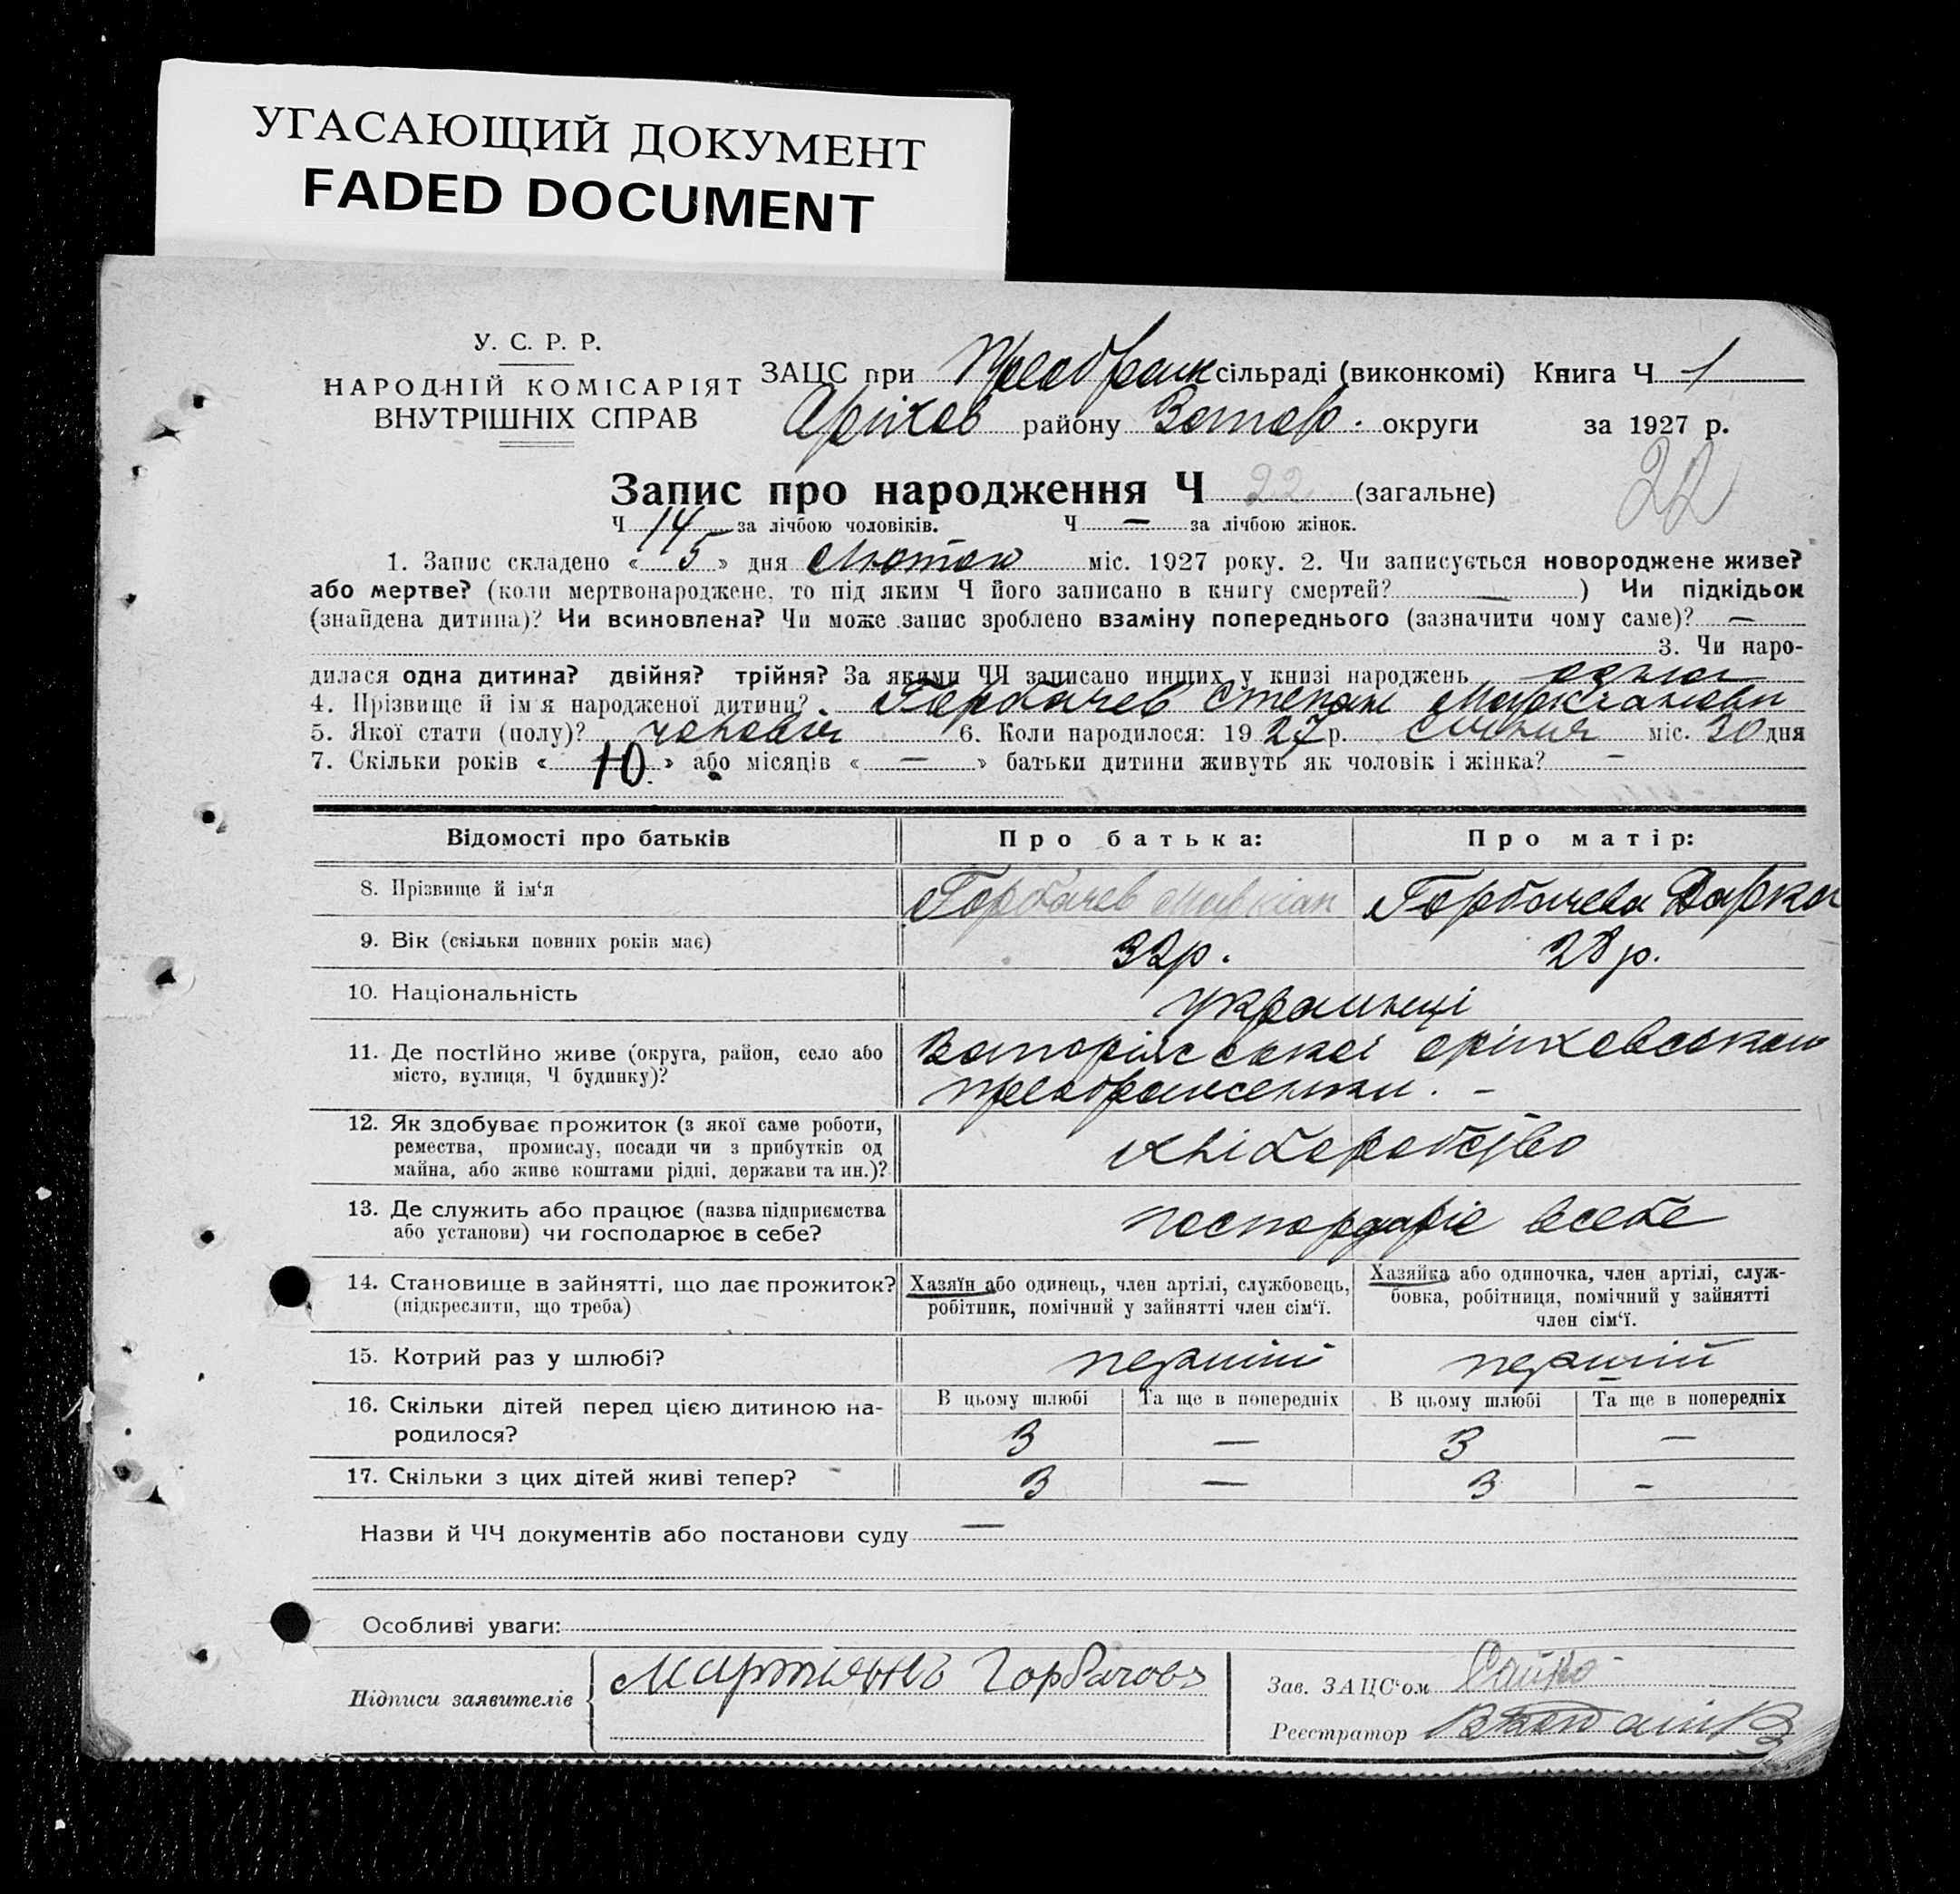 УГАСАЮЩИЙ ДОКУМЕНТ
FADED DOCUMENT
У. С. Р. Р.
НАРОДНІЙ КОМІСАРІЯТ
ВНУТРІШНІХ СПРАВ
ЗАЦС при Преображ сільраді (виконкомі) Книга Ч 1
Оріхов району Запор. округи за 1927 р.
22
Запис про народження Ч 22 (загальне)
Ч 14 за лічбою чоловіків. Ч — за лічбою жінок.
1. Запис складено « 5 » дня Лютого міс. 1927 року. 2. Чи записується новороджене живе?
або мертве? (коли мертвонароджене, то під яким Ч його записано в книгу смертей? — ) Чи підкідьок
(знайдена дитина)? Чи всиновлена? Чи може запис зроблено взаміну попереднього (зазначити чому саме)? —
3. Чи наро-
дилася одна дитина? двійня? трійня? За якими ЧЧ записано инщих у книзі народжень одна
4. Прізвище й ім'я народженої дитини? Горбачев Степан Маркіянови
5. Якої стати (полу)? чоловіч 6. Коли народилося: 19 27 р. січня міс. 30 дня
7. Скільки років « 10 » або місяців « — » батьки дитини живуть як чоловік і жінка? —
Відомості про батьків Про батька: Про матір:
8. Прізвище й ім‘я Горбачев Маркіан Горбачева Дарка
9. Вік (скільки повних років має) 32р. 28р.
10. Національність українці
11. Де постійно живе (округа, район, село або Запоріжської оріховського
місто, вулиця, Ч будинку)? преображенка. –
12. Як здобуває прожиток (з якої саме роботи,
ремества, промислу, посади чи з прибутків од хліборобство
майна, або живе коштами рідні, держави та ин.)?
13. Де служить або працює (назва підприємства господаріє всебе
або установи) чи господарює в себе?
14. Становище в зайнятті, що дає прожиток? Хазяїн або одинець, член артілі, службовець, Хазяйка або одиночка, член артілі, служ-
(підкреслити, що треба) робітник, помічний у зайнятті член сім‘ї. бовка, робітниця, помічний у зайнятті
член сім‘ї.
15. Котрий раз у шлюбі? перший перший
16. Скільки дітей перед цією дитиною на- В цьому шлюбі Та ще в попередніх В цьому шлюбі Та ще в попередніх
родилося? 3 — 3 —
17. Скільки з цих дітей живі тепер? 3 — 3 -
Назви й ЧЧ документів або постанови суду —
Особливі уваги:
Підписи заявителів Мартиянъ Горбачовъ Зав. ЗАЦС‘ом
Реєстратор